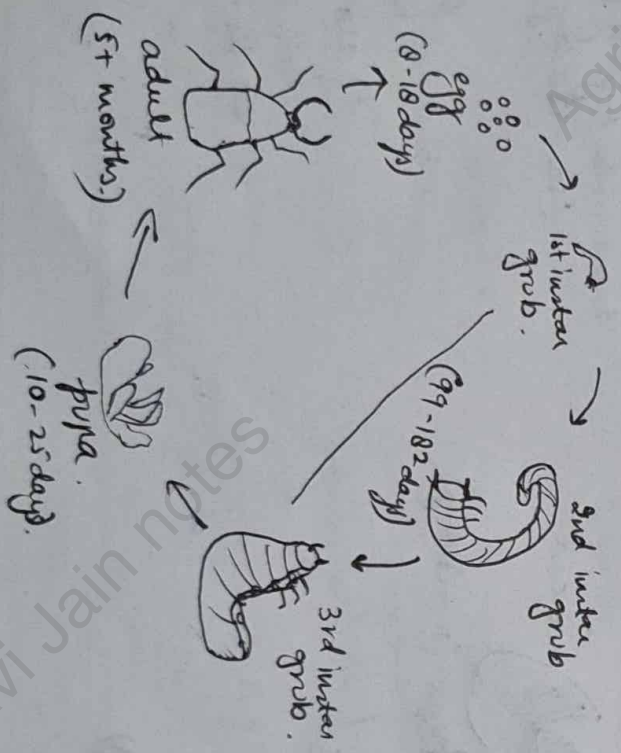 egg
(8-18 days)
1st instar
grub.
2nd instar
grub
(99-182
days)
3rd instar
grub.
pupa.
(10-25 days).
adult
(5+ months.)
Agr
vi Jain notes